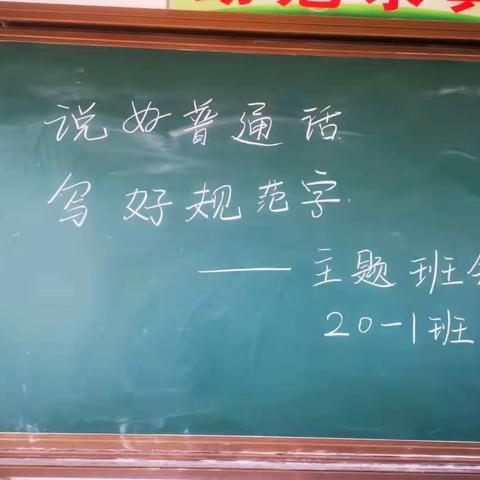 说好普通话
写好规范字
——主题班会
20-1班